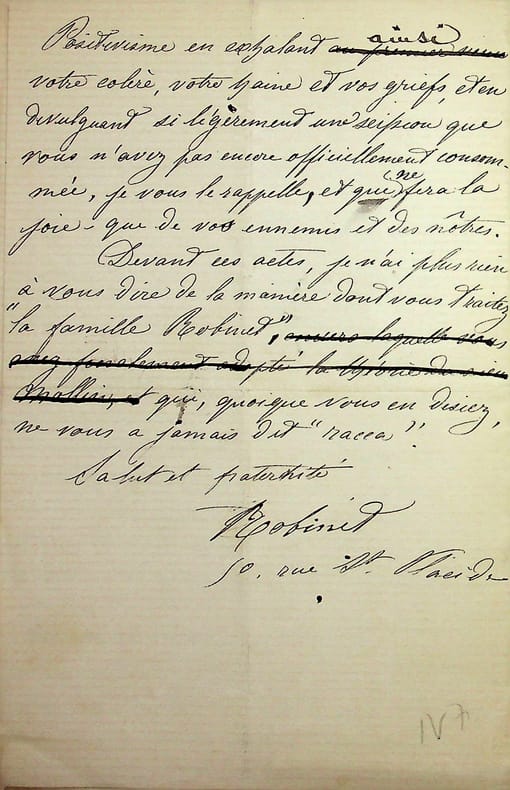 Positivisme en exhalant ainsi au premier venu
votre colère, votre haine et vos griefs, et en
divulguant si légèrement une scission que
vous n'avez pas encore officiellement consom-
mée, je vous le rappelle, et qui ne fera la
joie que de vos ennemis et des nôtres.
Devant ces actes, je n'ai plus rien
à vous dire de la manière dont vous traitez
"la famille Robinet", envers laquelle vous
avez finalement adopté la
et qui, quoique vous en disiez,
ne vous a jamais dit "racca".
Salut et fraternité
Robinet
50, rue St. Placide
IV 7